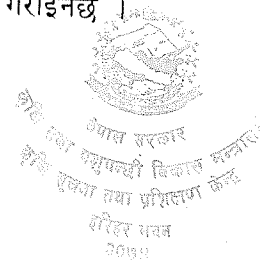 गराइनेछ ।
नेपाल सरकार
कृषि तथा पशुपन्छी विकास मन्त्रालय
कृषि सूचना तथा प्रशिक्षण केन्द्र
हरिहर भवन